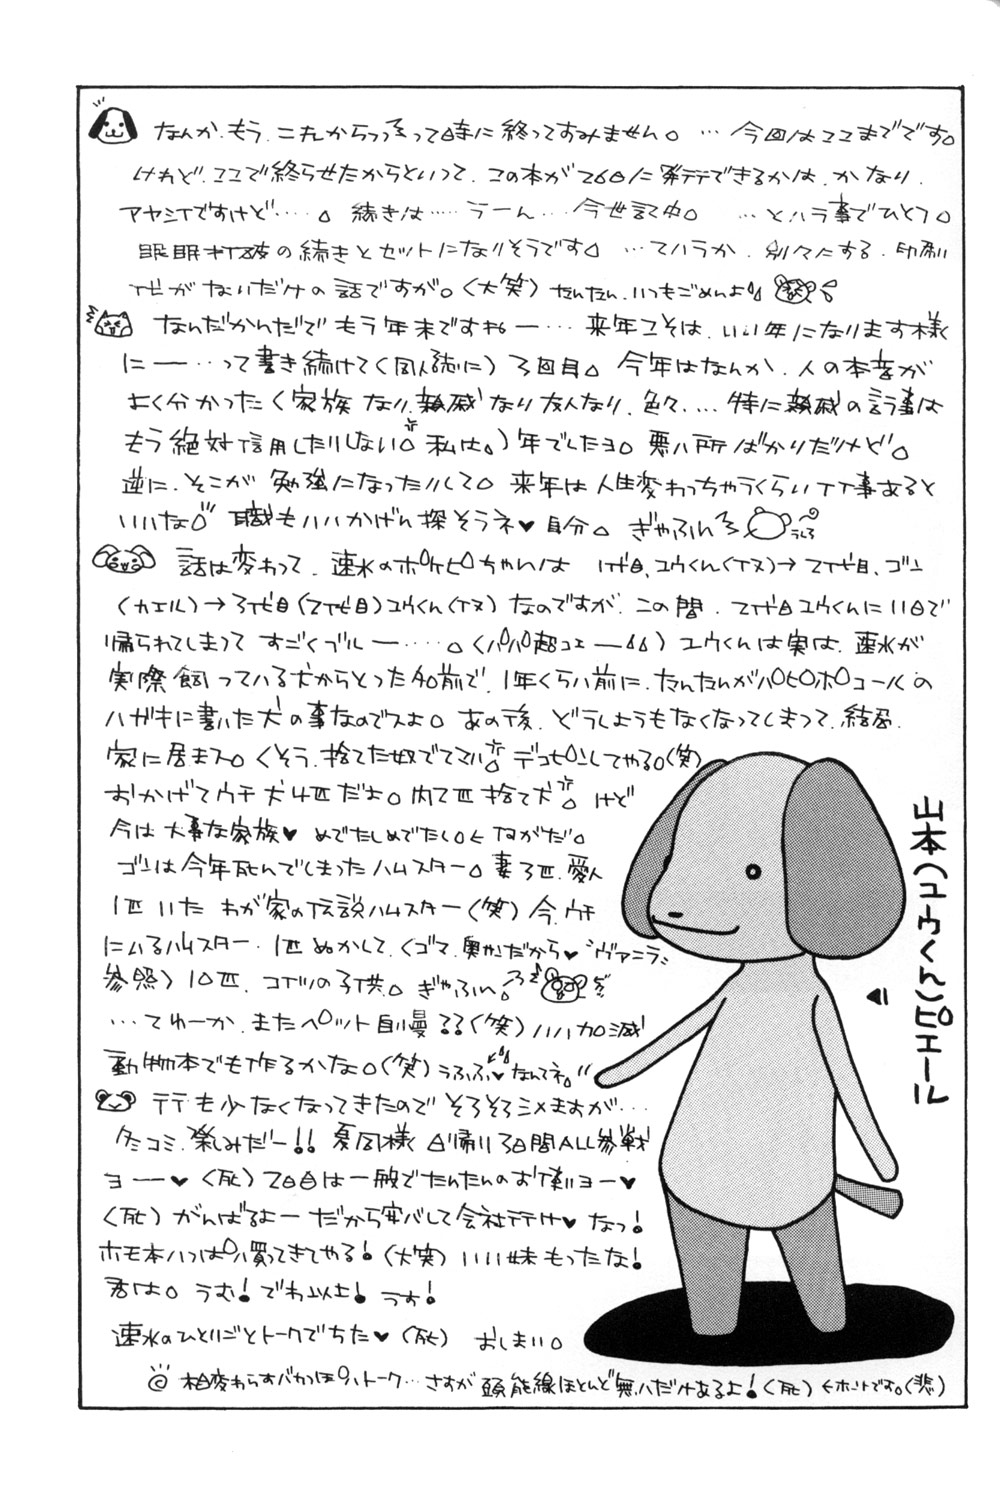 なんか、もう、これからっって時に終ってすみません。… 今回はここまでです。
けれど、ここで終らせたからといって、この本が26日に発行できるかは、かなり、
アヤシイですけど……。続きは……うーん…今世記中。…とハラ事でひとつ。
眠眠打破の続きとセットになりそうです。…てハうか、別々にする、印刷
代がないだけの話ですが。(大笑) たんたん、いつもごめんよ
なんだかんだで もう年末ですねー… 来年こそは、いい年になります様
にー…って書き続けて(同人誌に) 3回目。今年はなんか、人の本音が
よく分かった(家族なり、親戚なり友人なり、色々…特に親戚の言う事は
もう絶対信用したりしない。私は。)年でしたヨ。悪い所ばかりだけど。
逆に、そこが 勉強になったりして。来年は人生変わっちゃうくらいイイ事あると
いいな。職もいいかげん探そうネ♥自分。ぎゃふん
話は変わって、速水のポケピちゃんは 1代目、ユウくん(イヌ)→2代目、ゴン
(カエル)→3代目(2代目)ユウくん(イヌ)なのですが、この間、2代目ユウくんに11日で
帰られてしまって すごくブルー……。(パパ超コエー) ユウくんは実は、速水が
実際飼っている犬からとった名前で、1年くらい前に、たんたんがパピポコールの
ハガキに書いた犬の事なのでスよ。あの後、どうしようもなくなってしまって、結局、
家に居まス。(くそう、捨てた奴でてこい。デコピンしてやる。(笑)
おかげでウチ犬4匹だよ。内2匹捨て犬。けど
今は大事な家族♥めでたしめでたし。←ながだ。
ゴンは今年死んでしまったハムスター。妻3匹、愛人
1匹いた わが家の伝説ハムスター(笑) 今、ウチ
にいるハムスター、1匹ぬかして、(ゴマ、奥がだから♥ヴァニラ
参照) 10匹、コイツの子供。ぎゃふん。
…てゆーか、またペット自慢??(笑) いい加減
動物本でも作るかな。(笑) うふふ♥なんてネ。
行も少なくなってきたので そろそろシメますが…
冬コミ、楽しみだー!!夏同様 日帰り3日間ALL参戦
ヨーー♥(死) 2日目は一般でたんたんのお供ヨー♥
(死) がんばるよー だから安心して会社行け♥なっ!
ホモ本いっぱい買ってきてやる!(大笑) いい妹もったな!
君は。うむ! でわ以上! うす!
速水のひとりごとトークでちた♥(死) おしまい。
◎ 相変わらずバカっぽいトーク…さすが 頭能線ほとんど無いだけあるよ!(死)←ホントです。(悲)
山本(ユウくん)ピエール